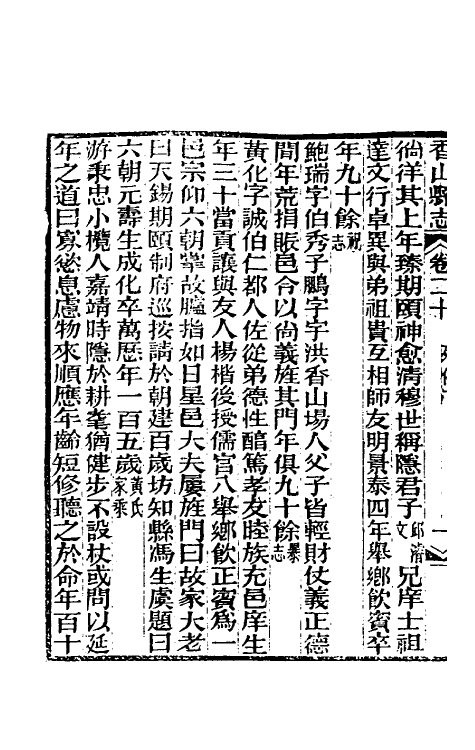 香山縣志 卷二十
徜徉其上年臻期頤神愈清穆世稱隱君子邱濬文兄庠士祖
達文行卓異與弟祖貴互相師友明景泰四年舉鄉飲賓卒
年九十餘祝志
鮑瑞字伯秀子鵬字宇洪香山場人父子皆輕財仗義正德
間年荒捐賑邑令以尚義旌其門年俱九十餘暴志
黃化字誠伯仁都人佐從弟德性醇篤孝友睦族充邑庠生
年三十當貢讓與友人楊楷後授儒官八舉鄉飲正賓爲一
邑宗仰六朝輩故臚指如日星邑大夫屢旌門曰故家大老
曰天錫期頤制府巡按請於朝建百歲坊知縣馮生虞題曰
六朝元壽生成化卒萬歷年一百五歲黃氏家乘
游秉忠小欖人嘉靖時隱於耕耄猶健步不設杖或問以延
年之道曰寡慾息慮物來順應年齡短修聽之於命年百十